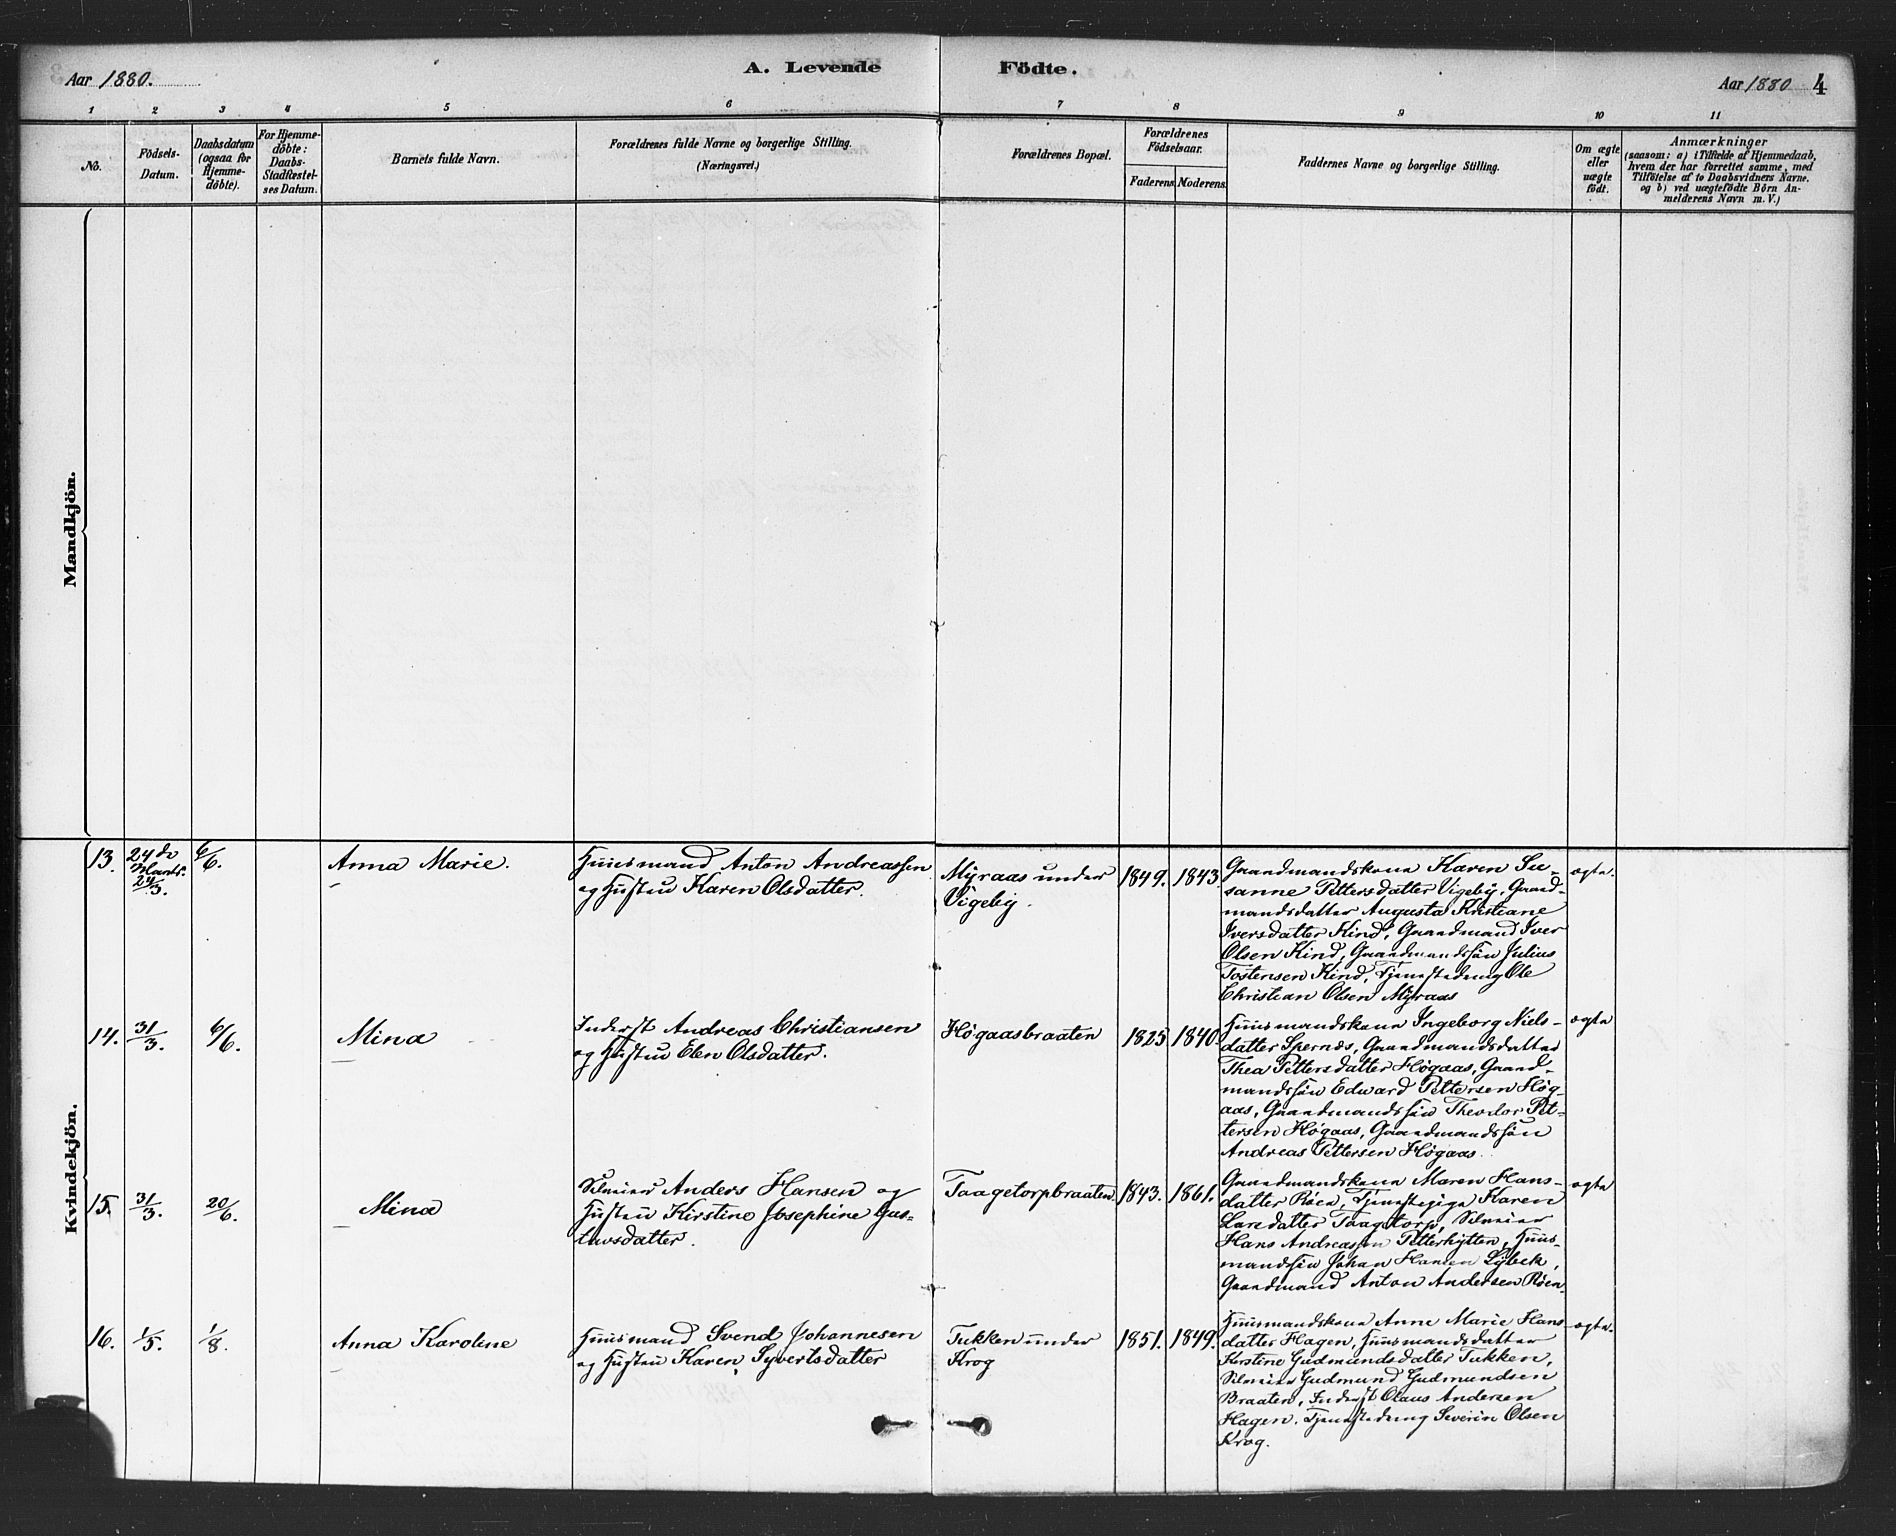 Aar 1880.
A. Levende Födte.
Aar 1880 4
1 2 3 4 5 6 7 8 9 10 11
No.
Födsels-
Datum.
Daabsdatum
(ogsaa for
Hjemme-
döbte).
For Hjemme-
döbte:
Daabs-
Stadfæstel-
ses Datum.
Barnets fulde Navn.
Forældrenes fulde Navne og borgerlige Stilling.
(Næringsvei.)
Forældrenes Bopæl.
Forældrenes
Födselsaar.
Faderens. Moderens.
Faddernes Navne og borgerlige Stilling.
Om ægte
eller
uægte
födt.
Anmærkninger
(saasom: a) i Tilfælde af Hjemmedaab,
hvem der har forrettet samme, med
Tilföielse af to Daabsvidners Navne.
og b) ved uægtefödte Börn An-
melderens Navn m. V.)
Mandkjön.
Kvindekjön.
13.
24de
Marts.
24/3.
6/6.
Anna Marie.
Huusmand Anton Andreassen
og Hustru Karen Olsdatter.
Myraas under
Vigeby.
1849. 1843.
Gaardmandskone Karen Su-
sanne Pettersdatter Vigeby, Gaard-
mandsdatter Augusta Kristiane
Iversdatter Kind, Gaardmand Iver
Olsen Kind, Gaardmandssøn Julius
Tostensen Kind, Tjenestedreng Ole
Christian Olsen Myraas
ægte.
14.
31/3.
6/6.
Mina
Inderst Andreas Christiansen
og Hustru Elen Olsdatter.
Høgaasbraaten
1825 1840
Huusmandskone Ingeborg Niels-
datter Spernæs, Gaardmandsdatter
Thea Pettersdatter Høgaas, Gaard-
mandssøn Edward Pettersen Høg-
aas, Gaardmandssøn Theodor Pet-
tersen Høgaas, Gaardmandssøn
Andreas Pettersen Høgaas.
ægte
15.
31/3.
20/6.
Mina
Selveier Anders Hansen og
Hustru Kirstine Josephine Gus-
tavsdatter.
Taagetorpbraaten.
1843. 1861.
Gaardmandskone Maren Hans-
datter Röen, Tjenestepige Karen
Larsdatter Taagetorp, Selveier
Hans Andreassen Petterhytten, Huus-
mandssøn Johan Hansen Lybeck,
Gaardmand Anton Andersen Röen.
ægte
16.
1/5.
1/8.
Anna Karoline
Huusmand Svend Johannesen
og Hustru Karen Syvertsdatter
Tukken under
Krog
1851. 1849.
Huusmandskone Anne Marie Hans
datter Hagen, Huusmandsdatter
Kerstine Gudmundsdatter Tukken,
Selveier Gudmund Gudmundsen
Braaten, Inderst Olaus Andersen
Hagen. Tjenestedreng Severin Olsen
Krog.
ægte.